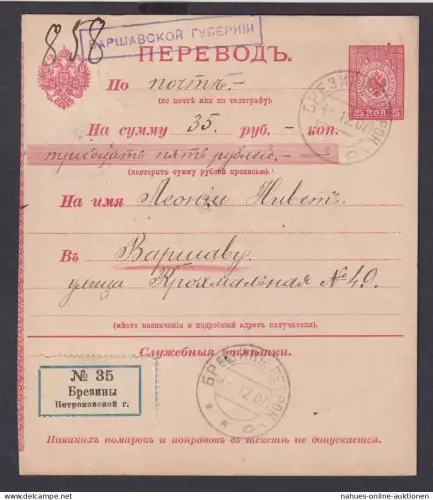 858
ВАРШАВСКОЙ ГУБЕРНІИ
ПЕРЕВОДЪ.
По почтѣ.-
(по почтѣ или по телеграфу).
25 КОП. 25
На сумму 35. руб. - коп.
тридцать пять рублей. -
(повторить сумму рублей прописью).
На имя Леоніи Ниветъ.
Въ Варшаву.
улица Крохмальная №49.
(мѣсто назначенія и подробный адресъ получателя).
Служебныя отмѣтки.
№ 35
Брезины
Петроковской г.
БРЕЗИНЫ ПЕТРОК. Г.
12.07
Никакихъ помарокъ и поправокъ въ текстѣ не допускается.
https://www.nahues-online-auktionen